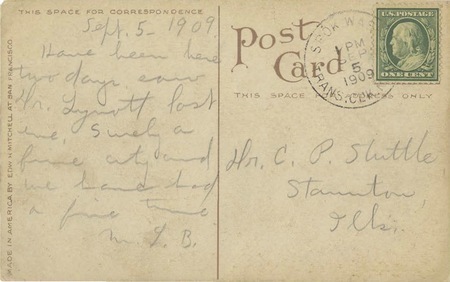 THIS SPACE FOR CORRESPONDENCE
Sept. 5 - 1909.
Have been here
two days saw
Dr. Lynott last
eve. Surely a
fine city and
we have had
a fine time
M. L. B.
MADE IN AMERICA BY EDW. H. MITCHELL AT SAN FRANCISCO.
Post
Card
THIS SPACE ONLY
PM
5
1909
U.S. POSTAGE
ONE CENT
Dr. C. P. Shttle
Staunton,
Ills.